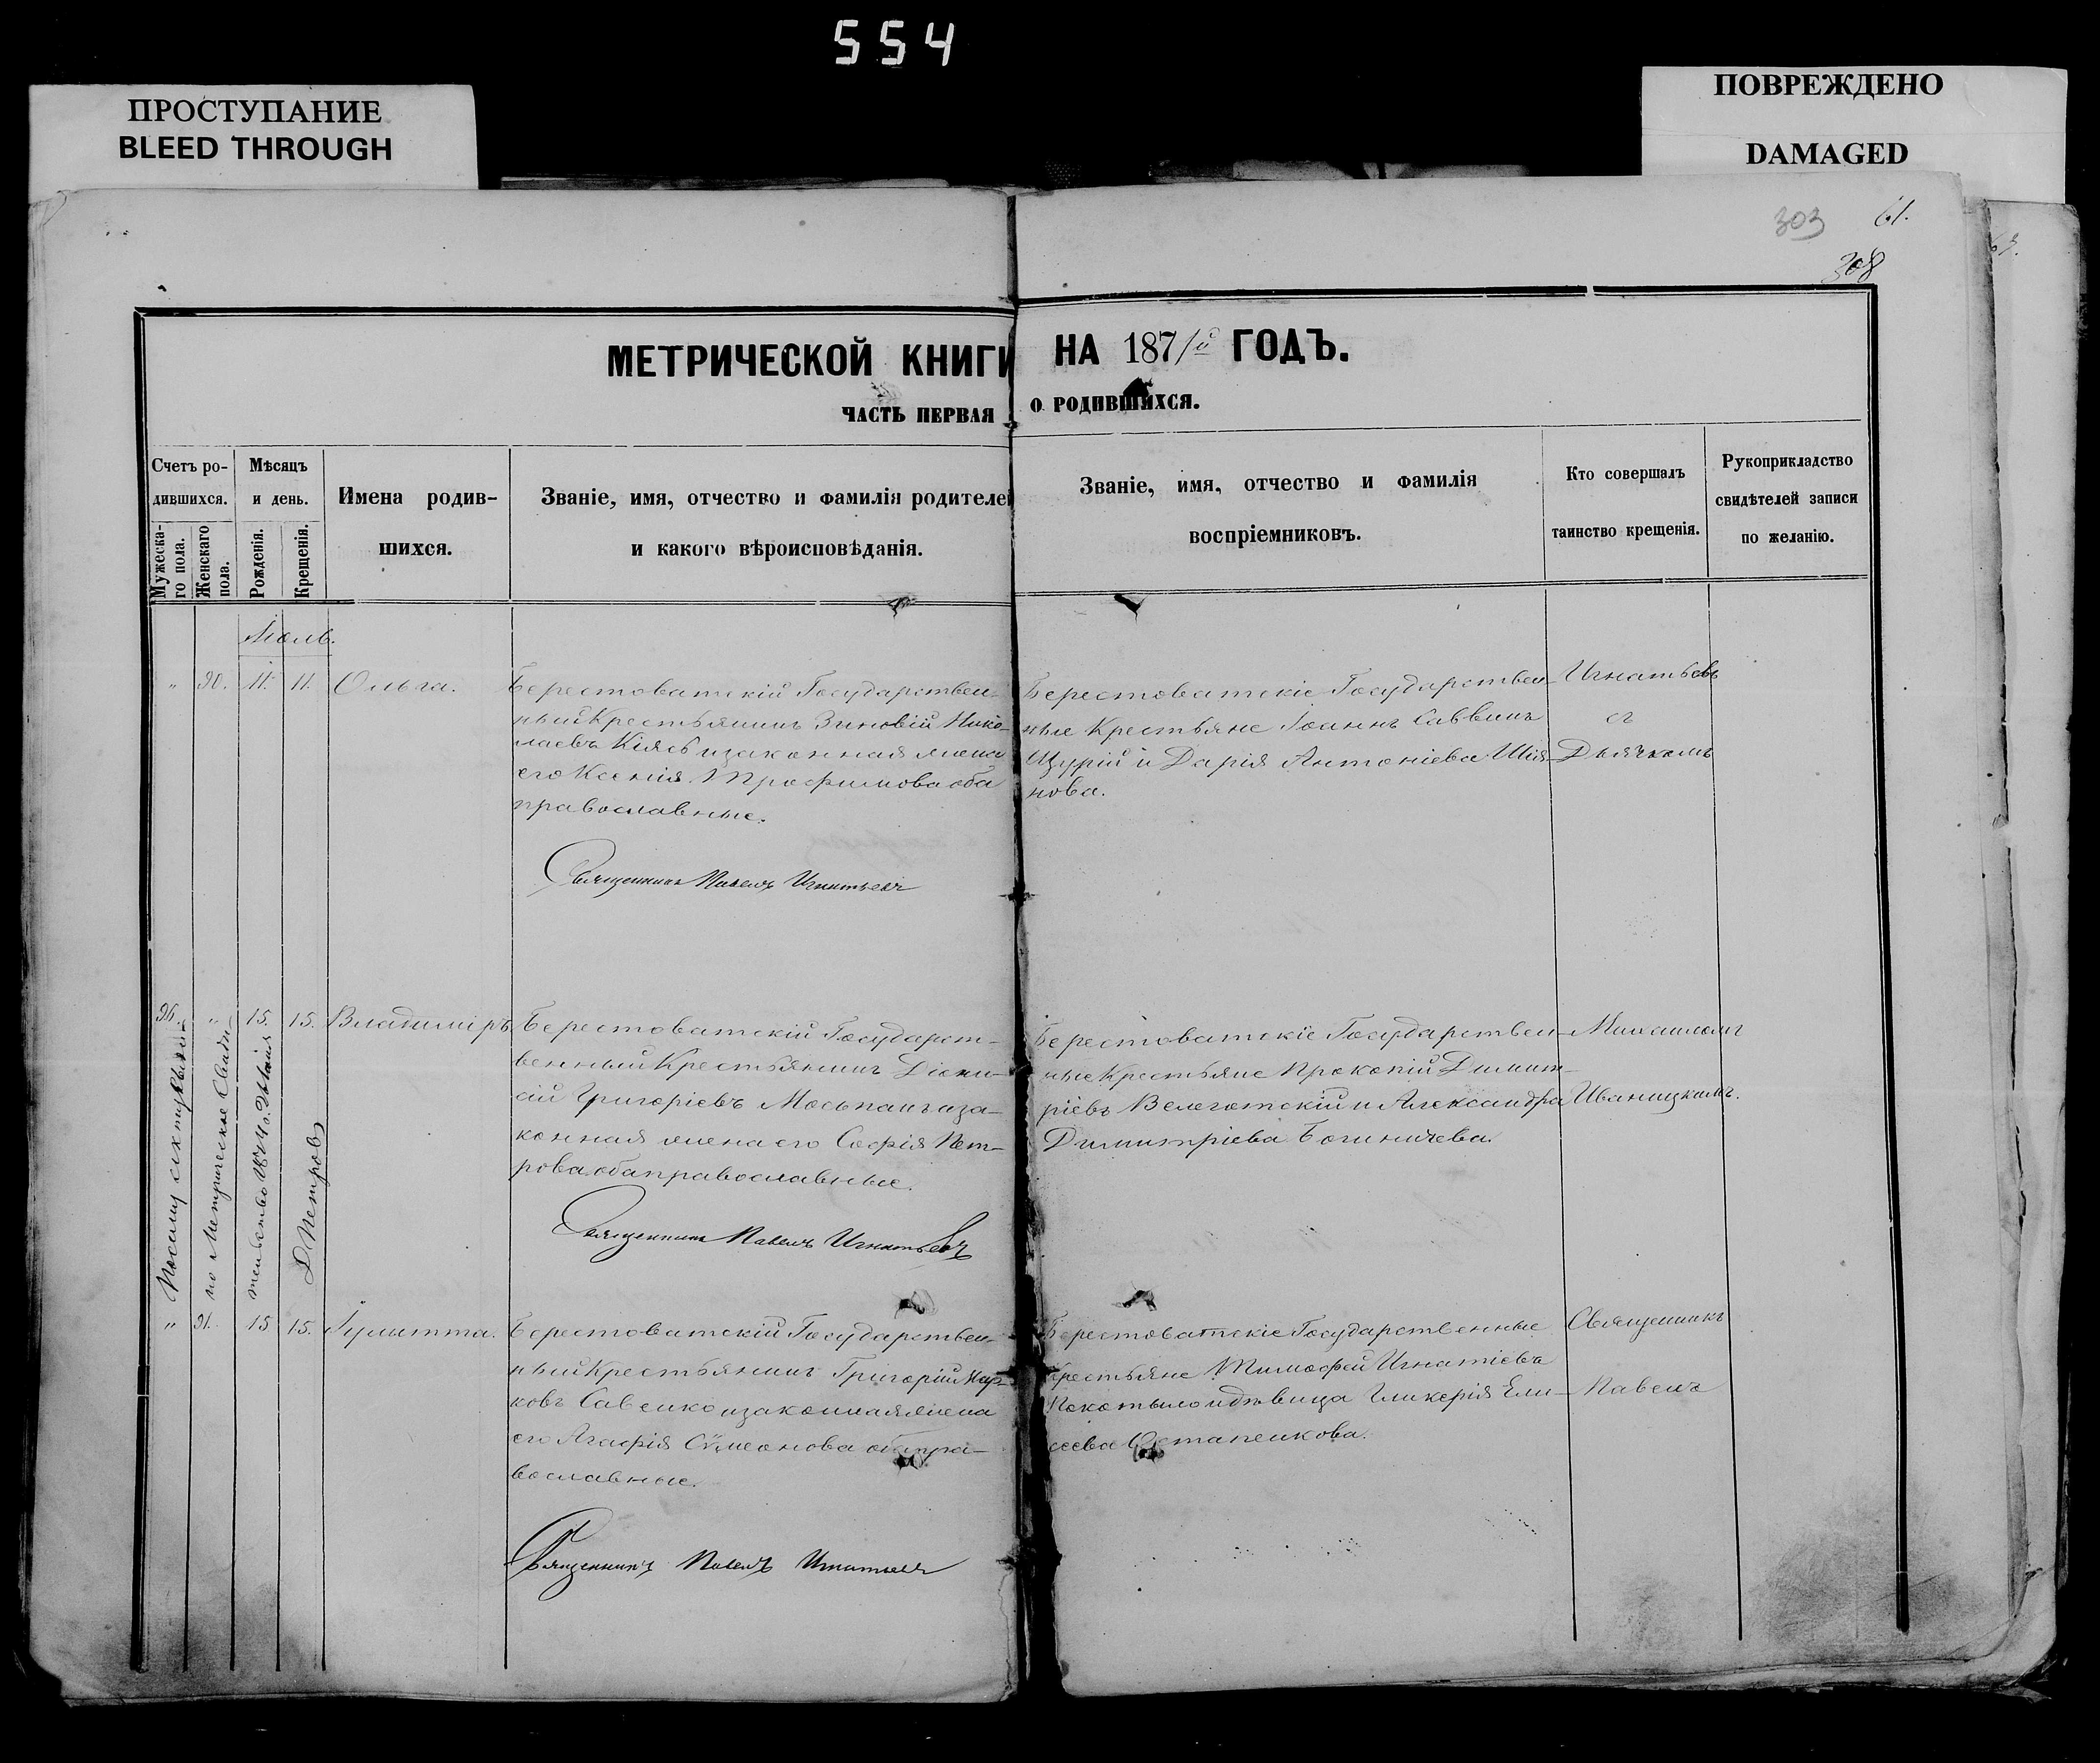 554
ПРОСТУПАНИЕ
BLEED THROUGH
ПОВРЕЖДЕНО
DAMAGED
303 61.
308
МЕТРИЧЕСКОЙ КНИГИ НА 1871й ГОДЪ.
ЧАСТЬ ПЕРВАЯ О РОДИВШИХСЯ.
Счетъ ро-
дившихся.
Мужеска-
го пола.
Женскаго
пола.
Мѣсяцъ
и день.
Рожденія.
Крещенія.
Имена родив-
шихся.
Званіе, имя, отчество и фамилія родителей
и какого вѣроисповѣданія.
Званіе, имя, отчество и фамилія
воспріемниковъ.
Кто совершалъ
таинство крещенія.
Рукоприкладство
свидѣтелей записи
по желанію.
Іюль.
" 90. 11. 11. Ольга.
Берестоватскій Государствен-
ный Крестьянинъ Зиновій Нико-
лаевъ Кіясь и законная жена
его Ксенія Трофимова оба
православные.
Священникъ Павелъ Игнатьевъ
Берестоватскіе Государствен-
ные Крестьяне Іоаннъ Саввинъ
Щурій и Дарія Антоніева Шія-
нова.
Игнатьевъ
съ
Дьячкомъ
96. " 15. 15. Владиміръ.
Берестоватскій Государст-
венный Крестьянинъ Діони-
сій Григоріевъ Моспанъ и за-
конная жена его Софія Пет-
рова оба православные.
Священникъ Павелъ Игнатьевъ
Берестоватскіе Государствен-
ные Крестьяне Прокопій Димит-
ріевъ Велеготскій и Александра
Димитріева Богиничева.
Михаиломъ
Иваницкимъ.
по Метрическое Свиди-
тельство
Д Петровъ
" 91. 15 15. Іулитта.
Берестоватскій Государствен-
ный Крестьянинъ Григорій Мар-
ковъ Савенко и законная жена
его Агафія Сѵмеонова оба пра-
вославные.
Священникъ Павелъ Игнатьевъ
Берестоватскіе Государственные
Крестьяне Тимофей Игнатіевъ
Покотыло и дѣвица Гликерія Ели-
сеева Остапенкова.
Священникъ
Павелъ